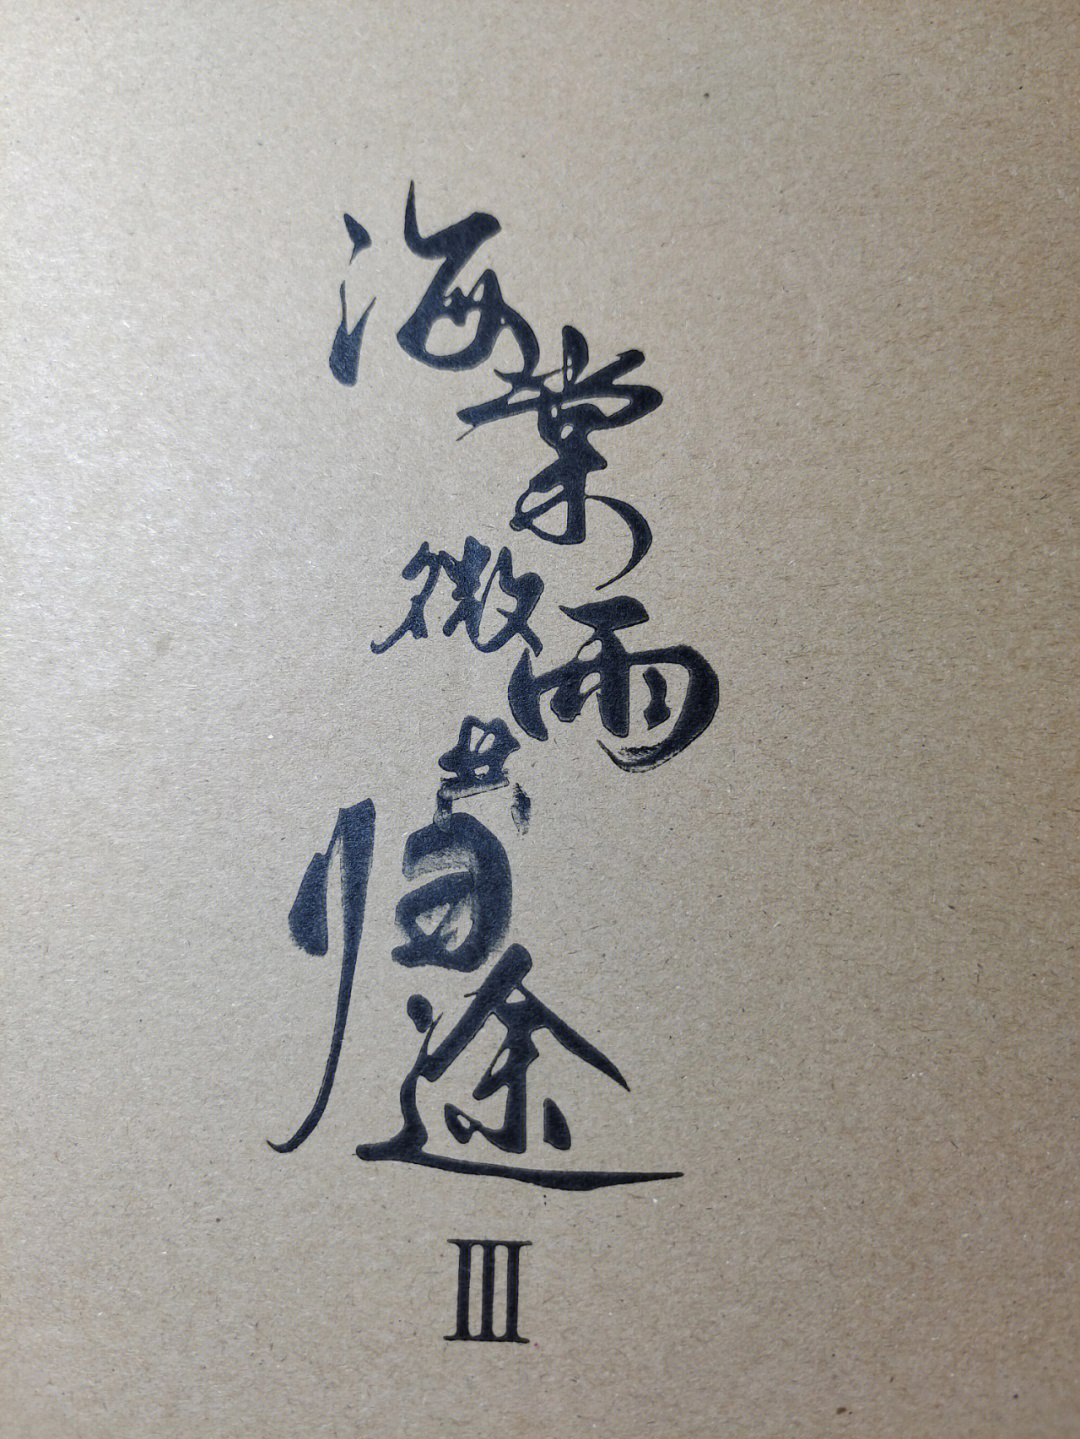 海棠微雨共归途
III